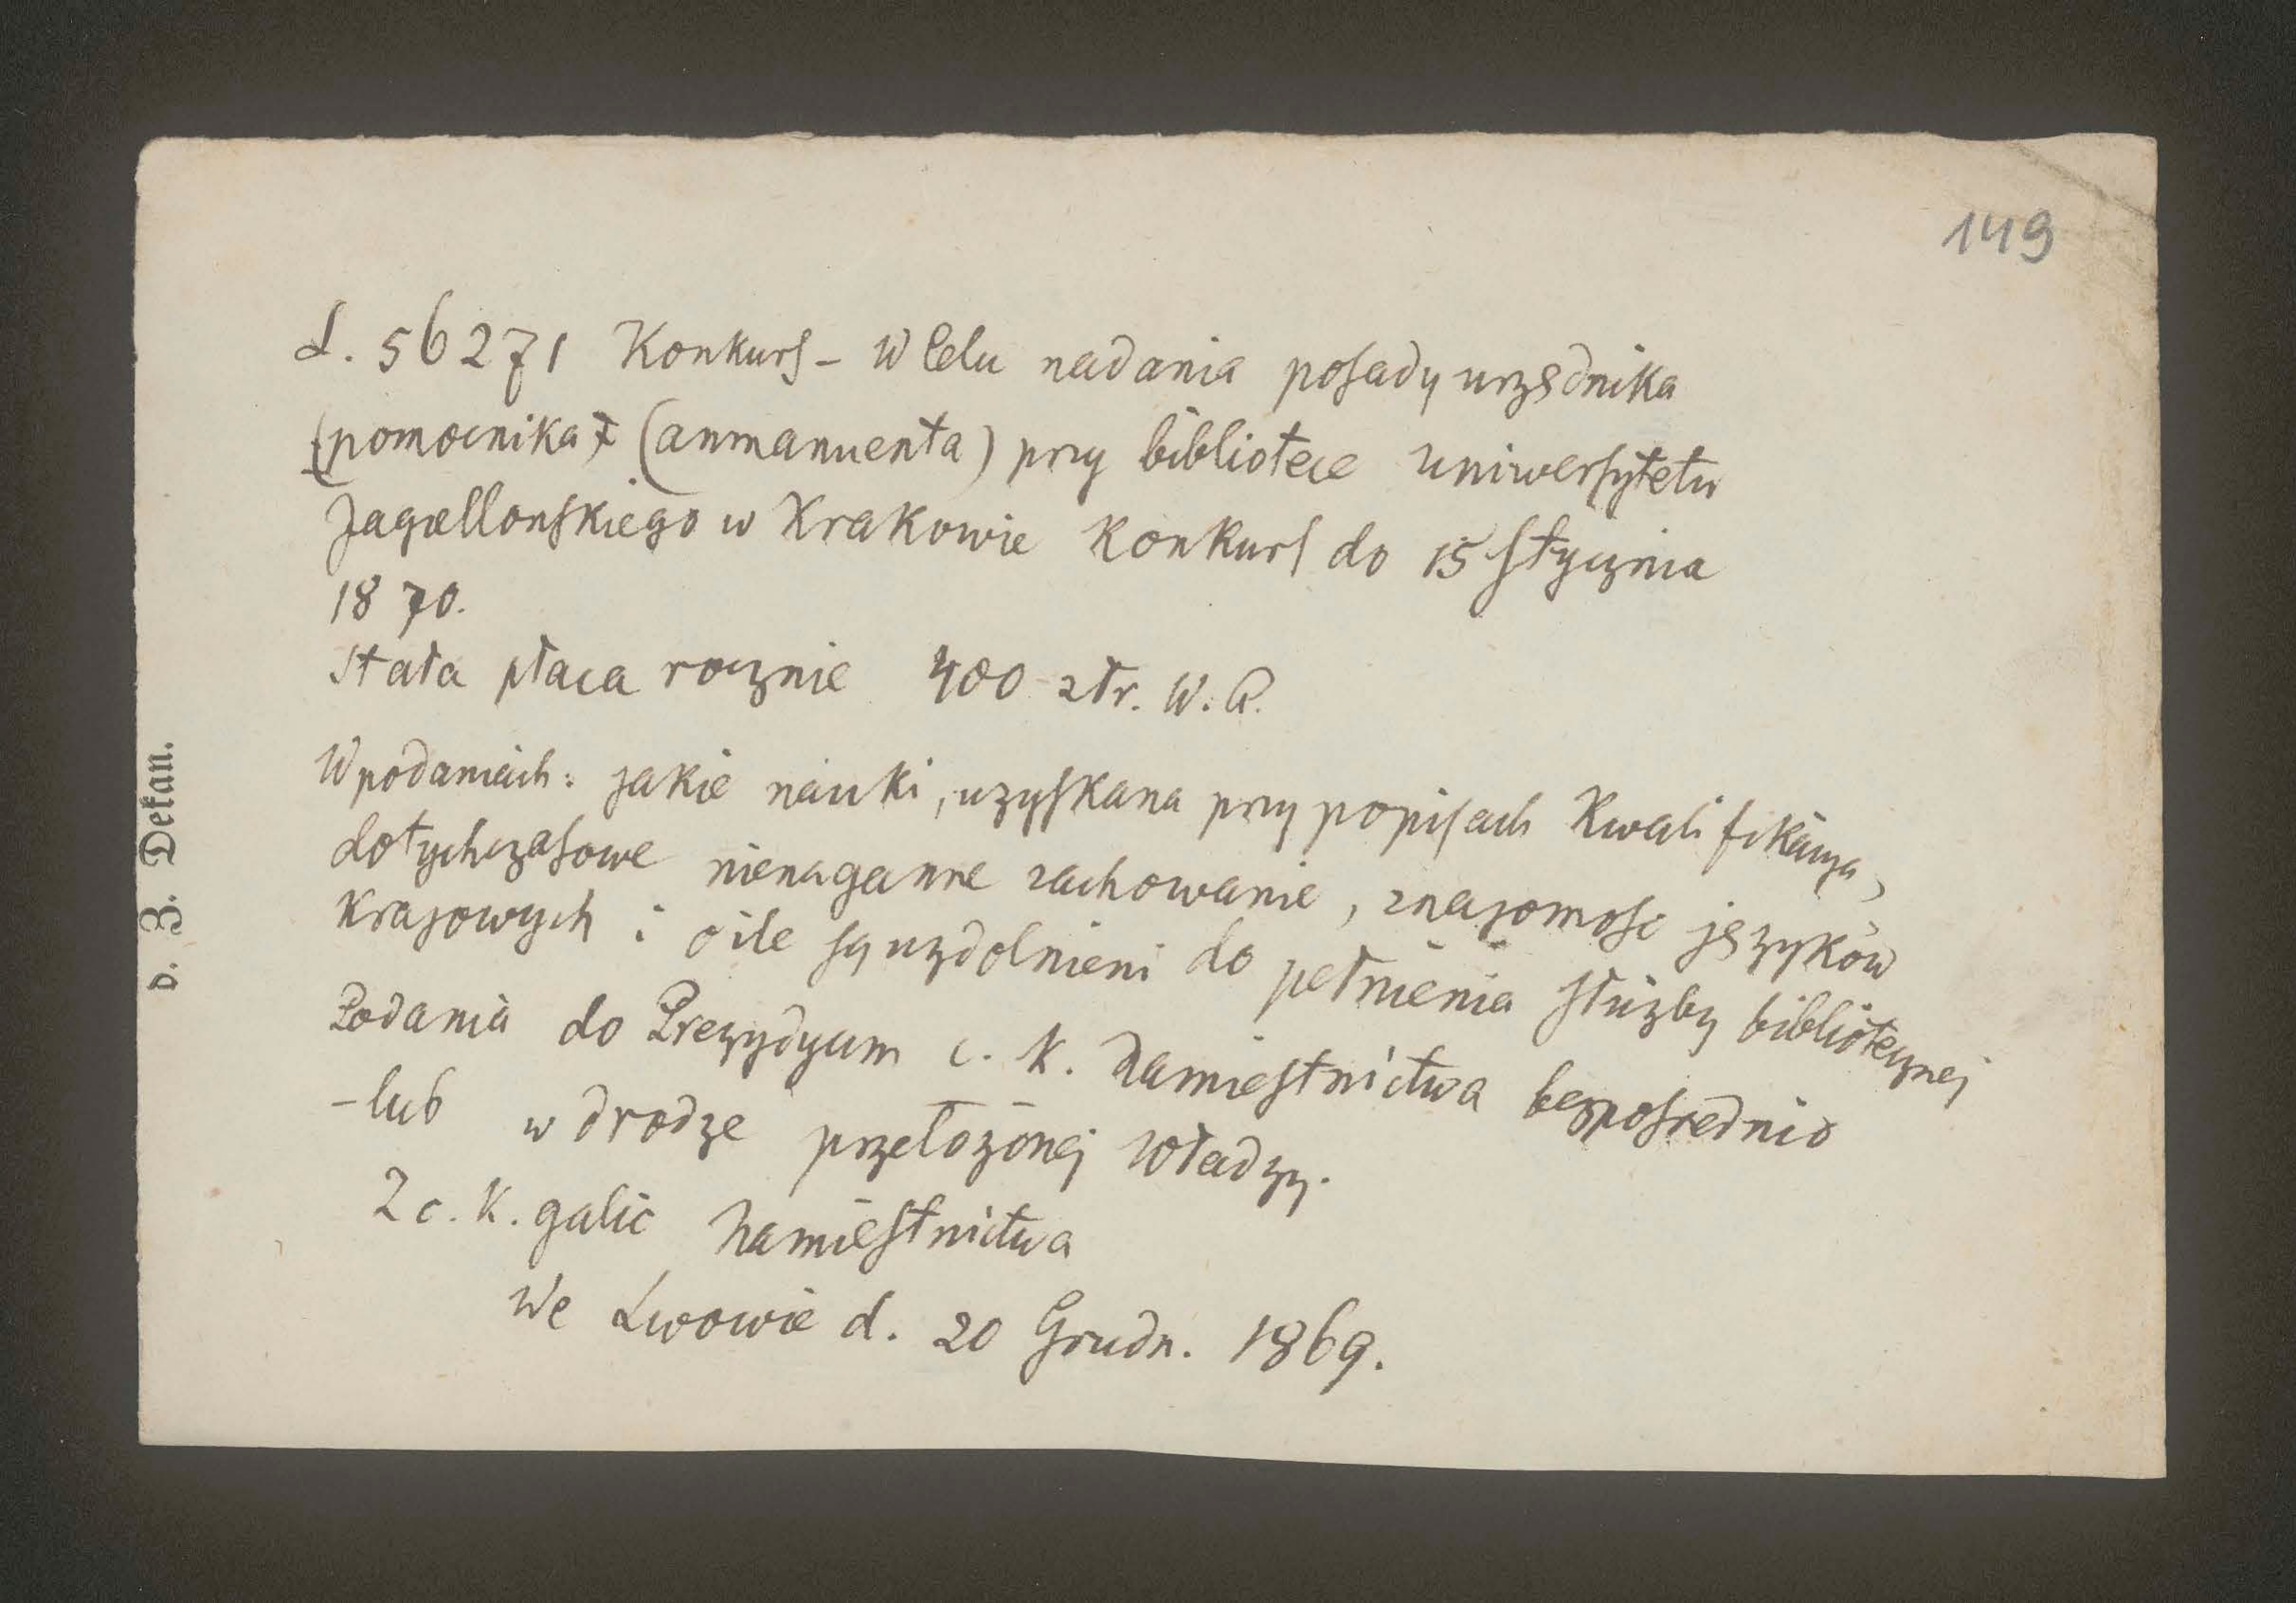 149
L. 56271 Konkurs – W Celu nadania posady urzędnika
(pomocnika) (anmanuenta) przy bibliotece uniwersytetu
Jagiellonskiego w Krakowie Konkurs do 15 stycznia
1870.
Stała płaca rocznie 400 złr. W. A.
W podaniach: jakie nauki, uzyskana przy popisach Kwalifikacya,
dotychczasowe nienaganne zachowanie, znajomość języków
Krajowych i o ile są uzdolnieni do pełnienia służby bibliotecznej
Podania do Prezydyum c. k. Namiestnictwa bezpośrednio
– lub w drodze przełożonej władzy.
Z c. k. galic Namiestnictwa
We Lwowie d. 20 Grudn. 1869.
d. Z. Dekan.